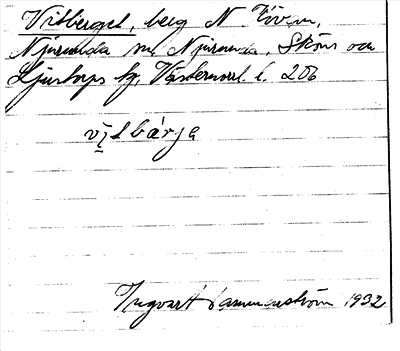 Vitberget, berg N Tövern,
Njurunda sn Njurunda, Sköns och
Ljustorps tg, Västernorrl. l. 206
vı̨tbárja
Ingvart Hammarström 1932